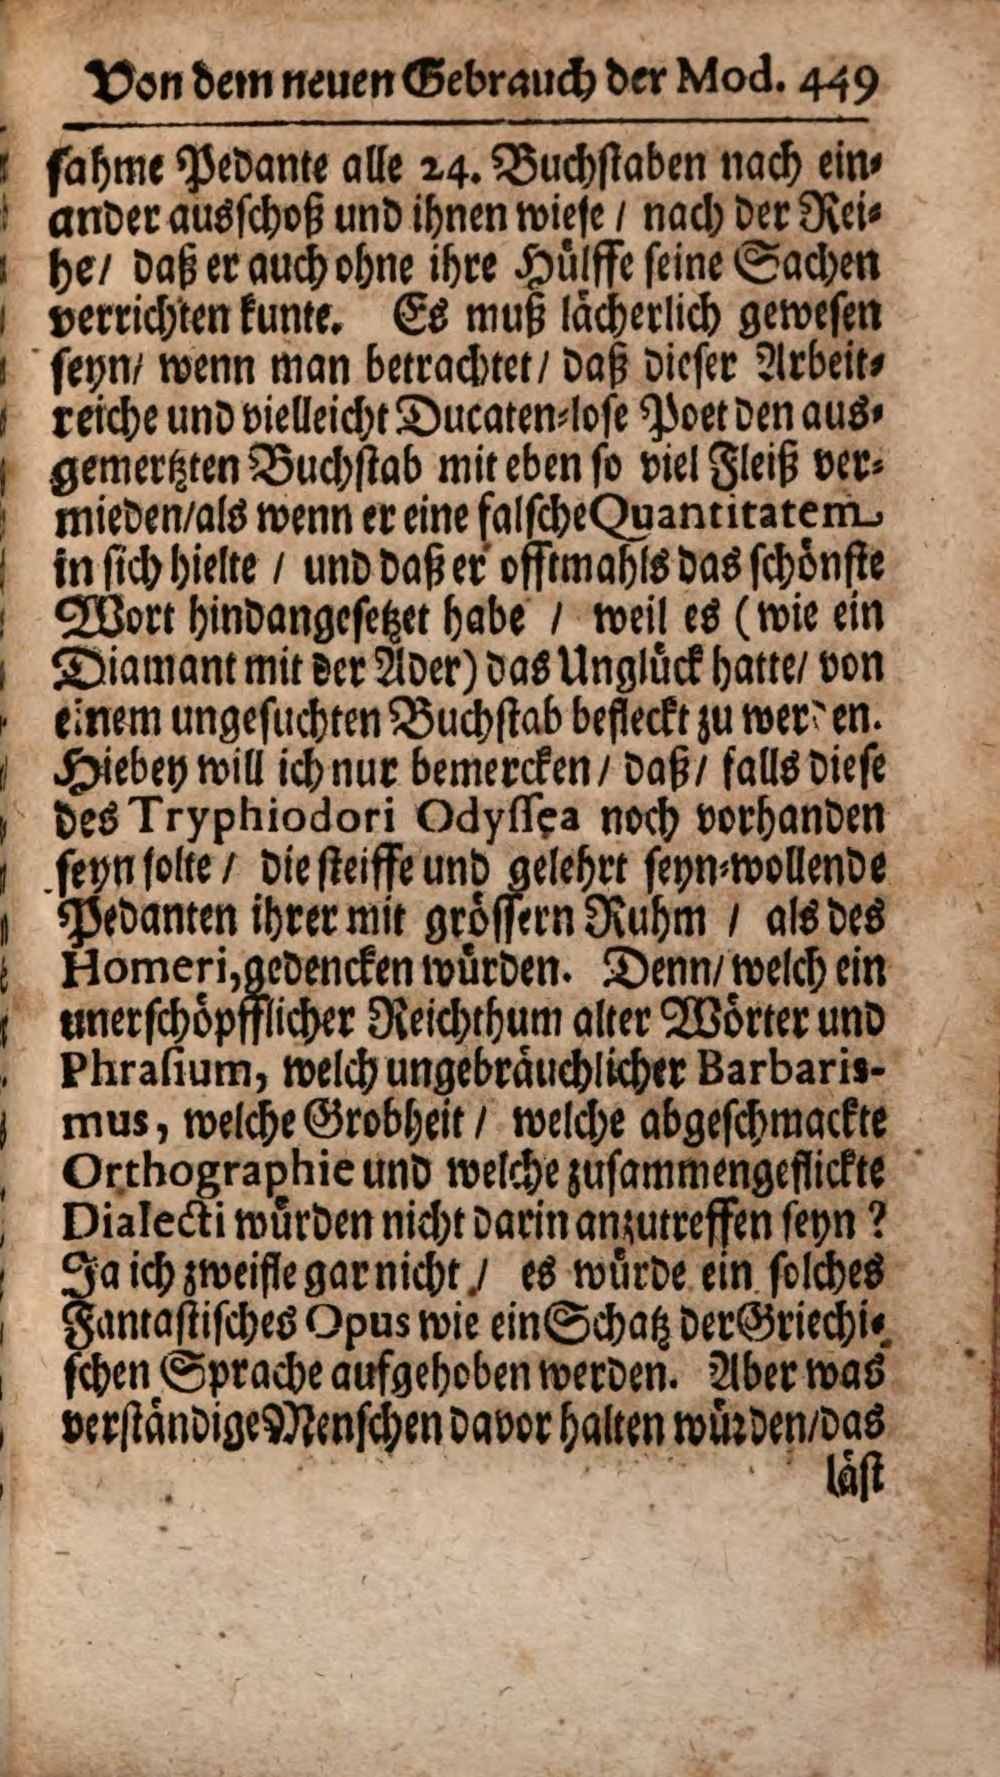 Von dem neuen Gebrauch der Mod. 449
sahme Pedante alle 24. Buchstaben nach ein⸗
ander ausschoß und ihnen wiese / nach der Rei⸗
he / daß er auch ohne ihre Hülffe seine Sachen
verrichten kunte. Es muß lächerlich gewesen
seyn / wenn man betrachtet / daß dieser Arbeit⸗
reiche und vielleicht Ducaten⸗lose Poet den aus⸗
gemertzten Buchstab mit eben so viel Fleiß ver⸗
mieden / als wenn er eine falsche Quantitatem
in sich hielte / und daß er offtmahls das schönste
Wort hindangesetzet habe / weil es (wie ein
Diamant mit der Ader) das Unglück hatte / von
einem ungesuchten Buchstab befleckt zu werden.
Hiebey will ich nur bemercken / daß / falls diese
des Tryphiodori Odyssea noch vorhanden
seyn solte / die steiffe und gelehrt seyn⸗wollende
Pedanten ihrer mit grössern Ruhm / als des
Homeri, gedencken würden. Denn / welch ein
unerschöpfflicher Reichthum alter Wörter und
Phrasium, welch ungebräuchlicher Barbaris-
mus, welche Grobheit / welche abgeschmackte
Orthographie und welche zusammengeflickte
Dialecti würden nicht darin anzutreffen seyn ?
Ja ich zweifle gar nicht / es würde ein solches
Fantastisches Opus wie ein Schatz der Griechi⸗
schen Sprache aufgehoben werden. Aber was
verständige Menschen davor halten würden / das
läst